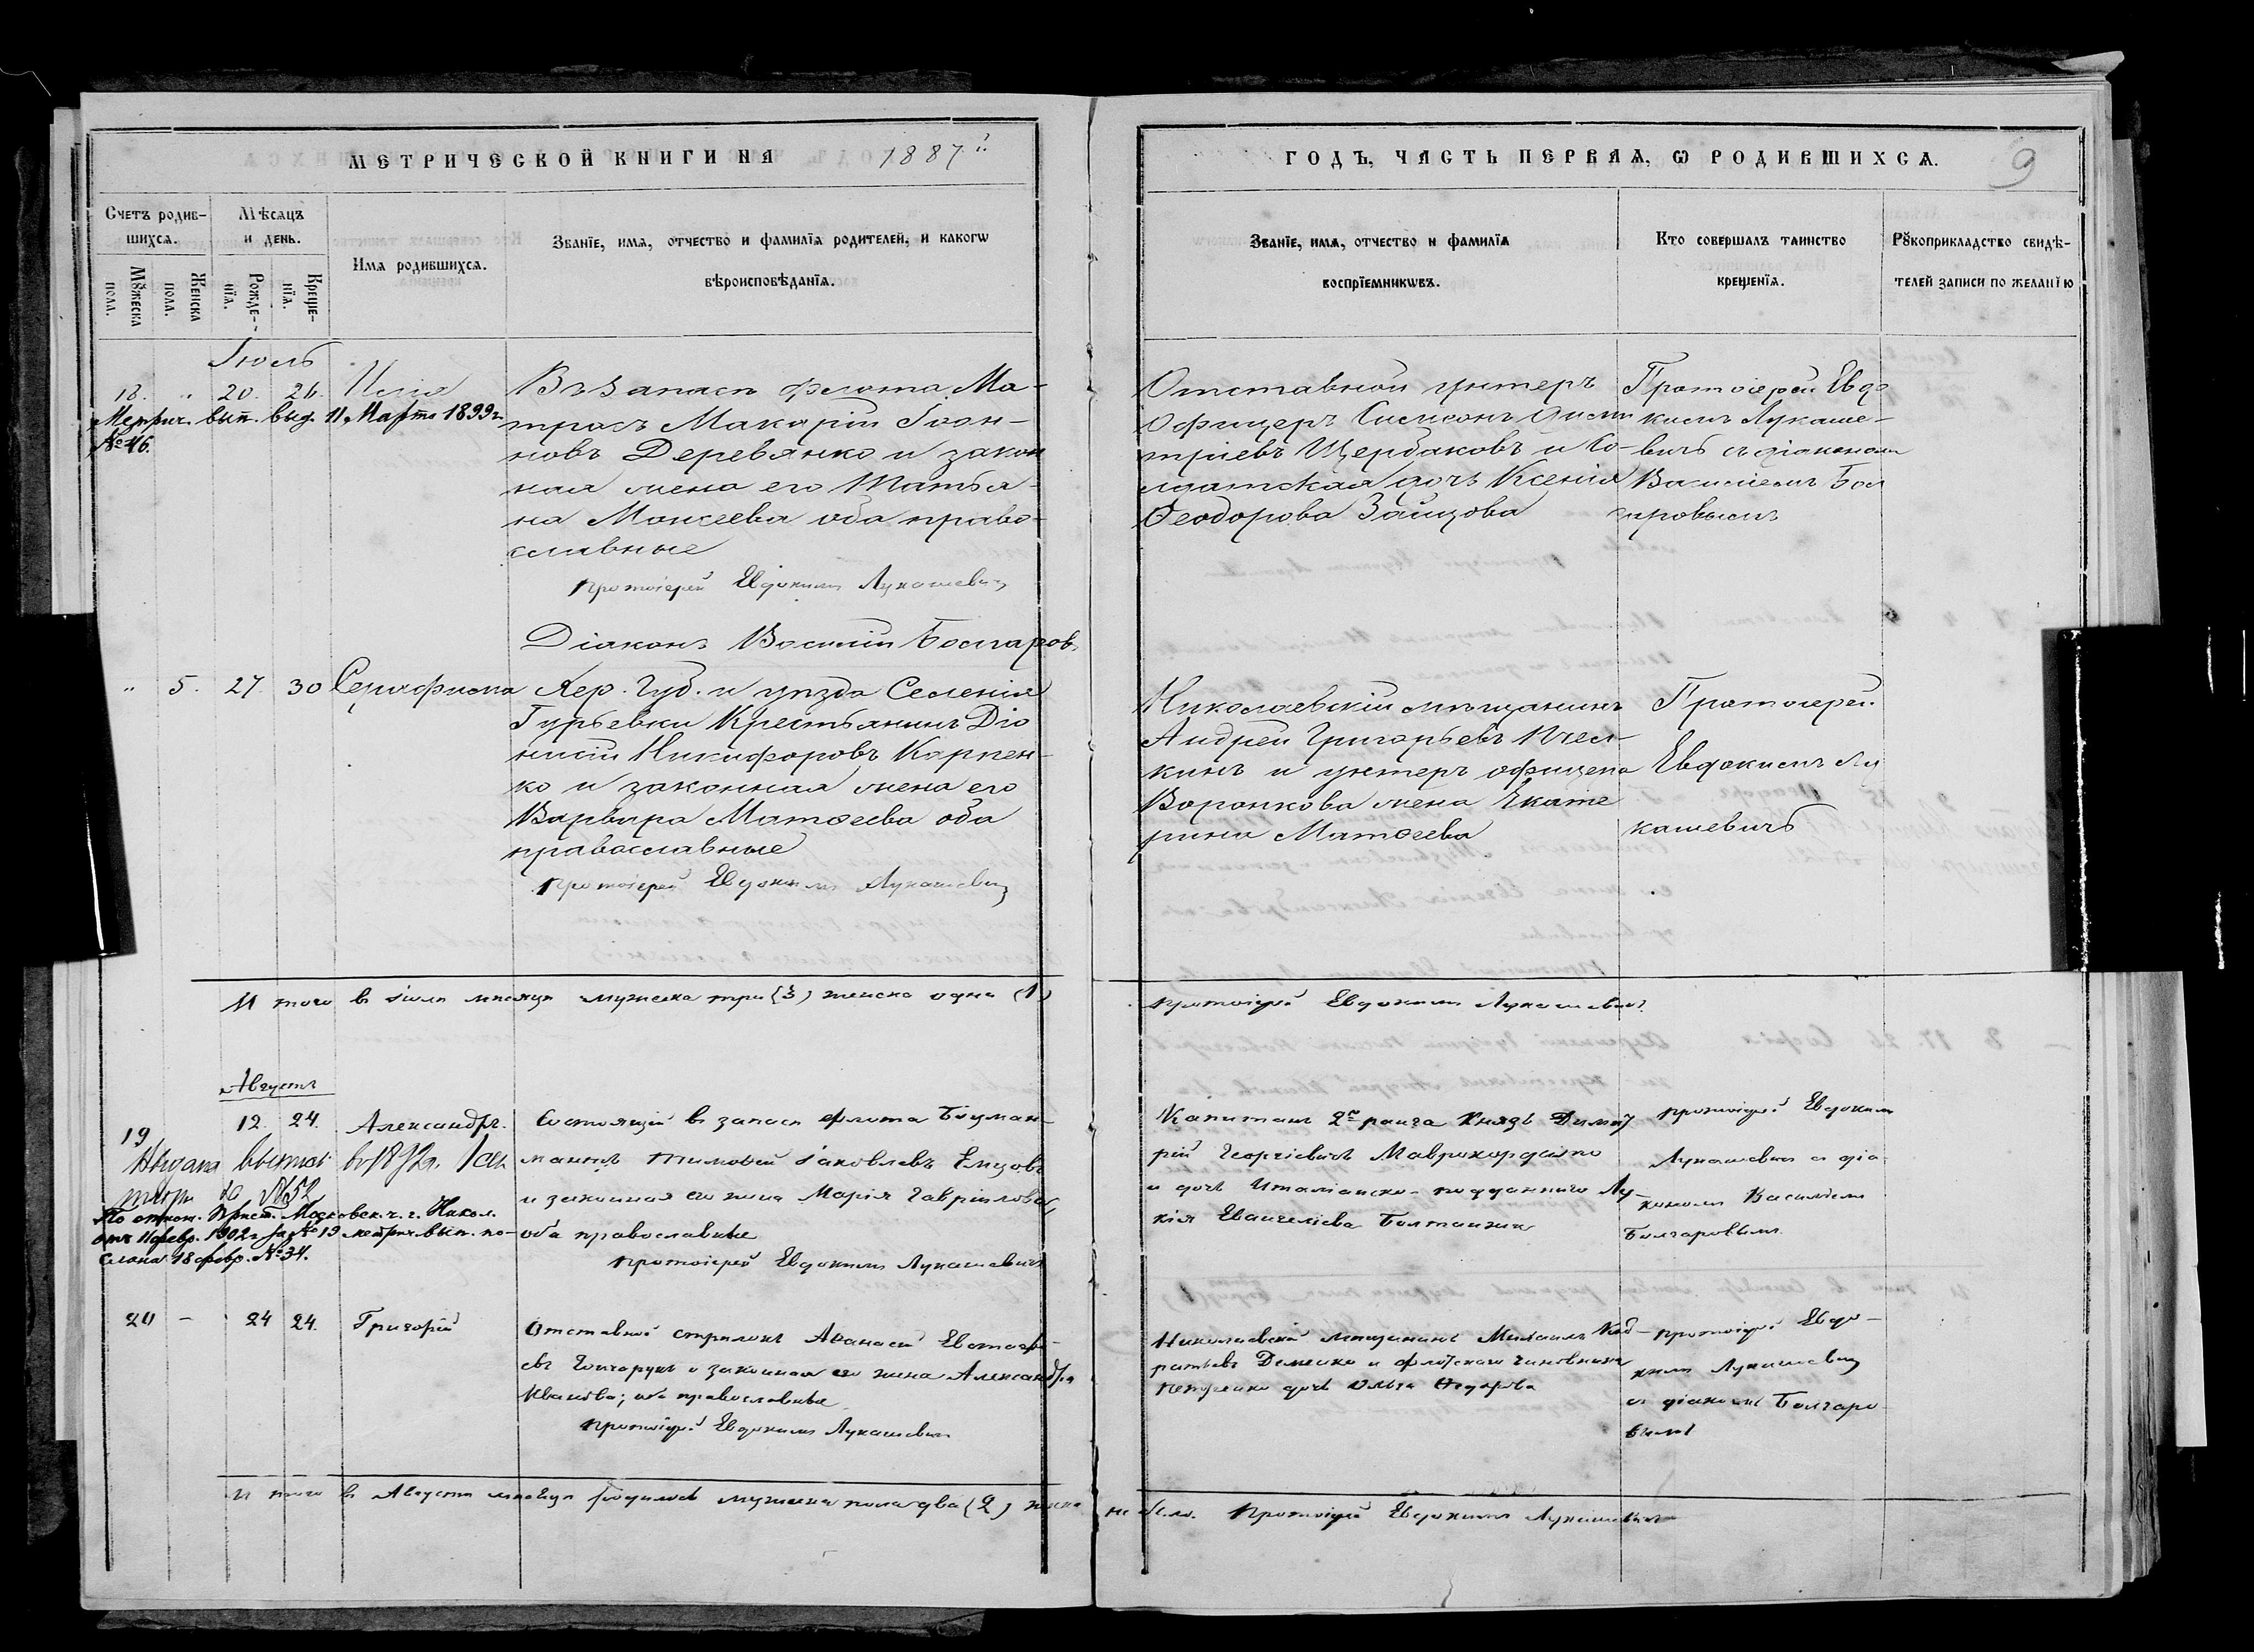 МЕТРИЧЕСКОЙ КНИГИ НА 1887й
ГОДЪ, ЧАСТЬ ПЕРВАЯ, Ѡ РОДИВШИХСѦ.
9
Счетъ родив-
шихсѧ.
Мѣсѧцъ
и день.
Мꙋжеска
пола.
Женска
пола.
Рожде-
нїѧ.
Креще-
нїѧ.
Имѧ родившихсѧ.
Званїе, имѧ, отчество и фамилїѧ родителей, и какогѡ
вѣроисповѣданїѧ.
Званїе, имѧ, отчество и фамилїѧ
воспрїемникѡвъ.
Кто совершалъ таинство
крещенїѧ.
Рꙋкоприкладство свидѣ-
телей записи по желанїю
Іюль
18. " 20. 26. Илія
Метрич. вып. выд. 11 Марта 1899 г.
№ 46.
Въ запасѣ флота Ма-
тросъ Макарій Іоан-
новъ Деревянко и закон
ная жена его Татья-
на Моисеева оба право-
славные
Протоіерей Евдокимъ Лукашевичъ
Діаконъ Василій Болгаровъ
Отставной унтеръ
Офицеръ Симеонъ Дими
тріевъ Щербаковъ и Со-
лдатская дочь Ксенія
Ѳеодорова Зайцова
Протоіерей Евдо
кимъ Лукаше-
вичъ съ діакономъ
Василіемъ Бол
гаровымъ
" 5. 27. 30 Серафима
Хер. Губ. и уѣзда Селенія
Гурьевки Крестьянинъ Діо
нисій Никифоровъ Карпен-
ко и законная жена его
Варвара Матѳеева оба
православные
Протоіерей Евдокимъ Лукашевичъ
Николаевскій мѣщанинъ
Андрей Григорьевъ
кинъ и унтеръ офицера
Воронкова жена Екате
рина Матѳеева
Протоіерей
Евдокимъ Лу
кашевичъ
И того в іюлѣ мѣсяцѣ мужеска три (3) женска одна (1)
протоіерей Евдокимъ Лукашевичъ
Августъ
19 12. 24. Александръ.
Выдана выпись
№ 52
По отнош. Прист. Московск. ч. г. Никол.
отъ 11 февр. 1902 г. за № 19 метрич. вып. по-
слана 18 февр. № 34.
Состоящій в запасѣ флота Боцман-
матъ Тимоѳей Іаковлевъ Емцовъ
и законная его жена Марія Гавріилова,
оба православные
протоіерей Евдокимъ Лукашевичъ
Капитанъ 2го ранга Князь Димит
рій Георгіевичъ Маврокордато
и дочь Италіанско-подданнаго Лу-
кія Евангеліева
протоіерей Евдокимъ
Лукашевичъ с діа-
кономъ Василіемъ
Болгаровымъ
20 - 24 24. Григорій
Отставной стрѣлокъ Аѳанасій Евстафі-
евъ Гончарукъ и законная его жена Александра
Иванова; оба православные
протоіерей Евдокимъ Лукашевичъ
Николаевскій мѣщанинъ Михаилъ Код-
ратьевъ Деменко и флотскаго чиновника
дочь Ольга Ѳедорова
протоіерей Евдо-
кимъ Лукашевичъ
съ діакономъ Болгаро
вымъ
и того в Августѣ мѣсяцѣ родилось мужеска пола два (2) женска
не было. Протоіерей Евдокимъ Лукашевичъ